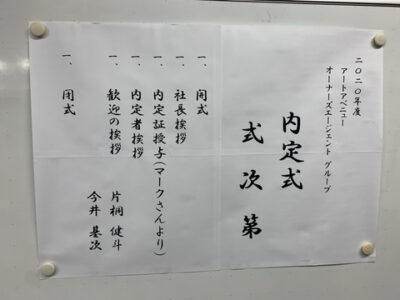 二〇二〇年度
アートアベニュー
オーナーズエージェント グループ
内定式
式次第
一、開式
一、社長挨拶
一、内定証授与(マークさんより)
一、内定者挨拶
一、歓迎の挨拶 片桐 健斗
今井 基次
一、閉式